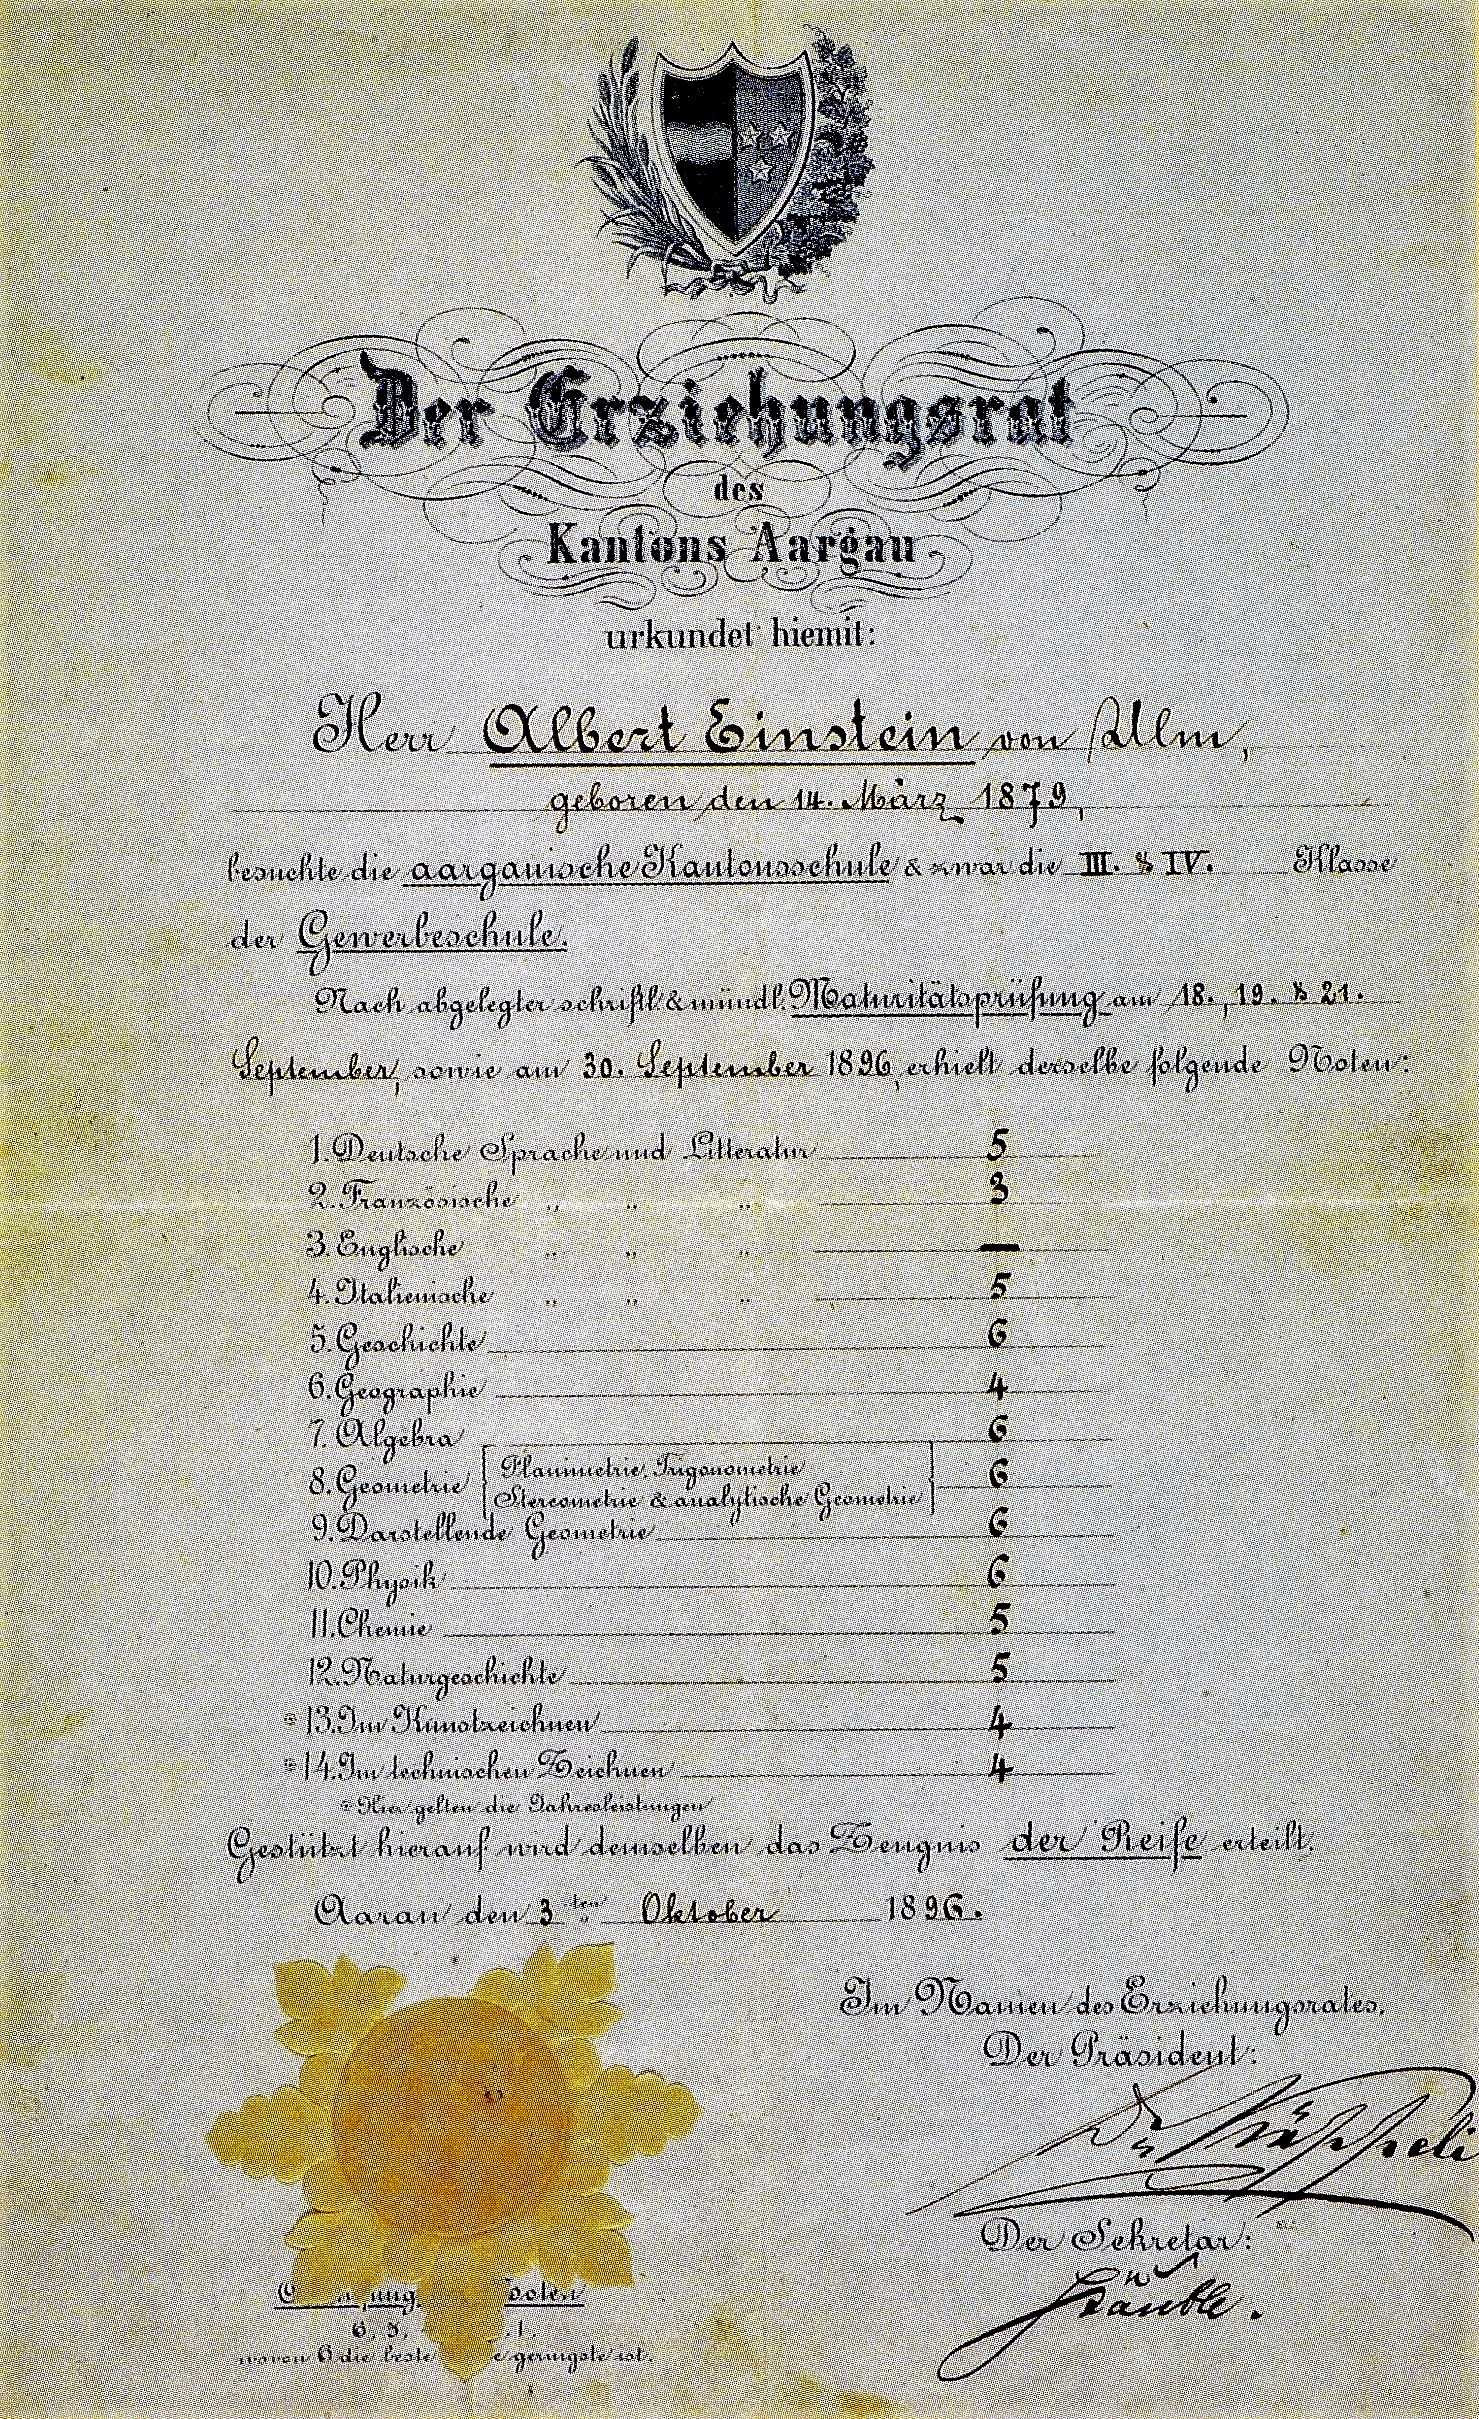 Der Erziehungsrat
des
Kantons Aargau
urkundet hiemit:
Herr Albert Einstein von Ulm,
geboren den 14. März 1879,
besuchte die aargauische Kantonsschule & zwar die III. & IV. Klasse
der Gewerbeschule.
Nach abgelegter schriftl. & mündl. Maturitätsprüfung am 18., 19. & 21.
September, sowie am 30. September 1896, erhielt derselbe folgende Noten:
1. Deutsche Sprache und Litteratur 5
2. Französische „ „ „ 3
3. Englische „ „ „ —
4. Italienische „ „ „ 5
5. Geschichte 6
6. Geographie 4
7. Algebra 6
8. Geometrie { Planimetrie, Trigonometrie
Stereometrie & analytische Geometrie } 6
9. Darstellende Geometrie 6
10. Physik 6
11. Chemie 5
12. Naturgeschichte 5
* 13. Im Kunstzeichnen 4
* 14. Im technischen Zeichnen 4
* Hier gelten die Jahresleistungen
Gestützt hierauf wird demselben das Zeugnis der Reife erteilt.
Aarau den 3ten Oktober 1896.
Im Namen des Erziehungsrates,
Der Präsident:
Dr Käppeli
Der Sekretär:
Stäuble.
6, 5, 1.
wovon 6 die beste geringste ist.